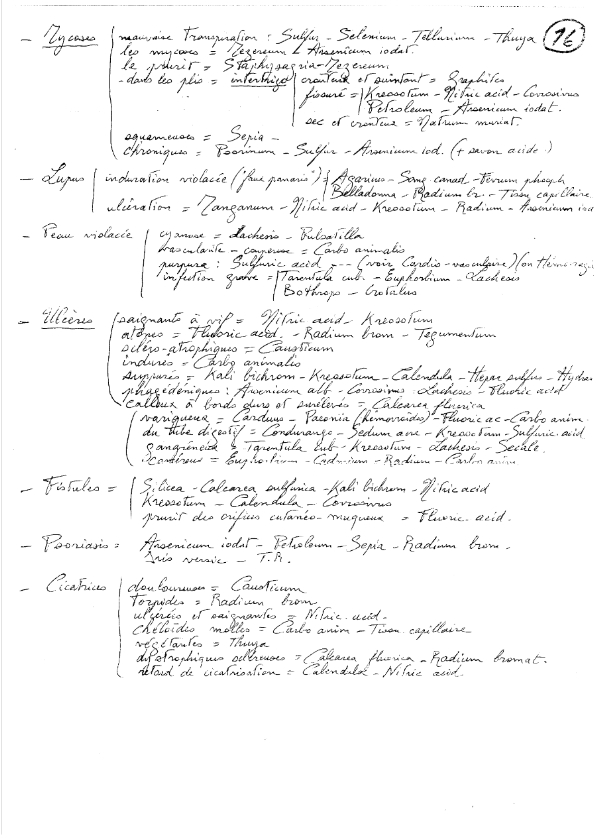 16
- Mycoses mauvaise transpiration : Sulfur - Selenium - Tellurium - Thuya
les mycoses = Mezereum - Arsenicum iodat.
le prurit = Staphysagria - Mezereum
- dans les plis = intertrigo croûteux et suintant = Graphites
fissuré = Kreosotum - Nitric acid - Corrosivus
Petroleum - Arsenicum iodat.
sec et croûteux = Natrum muriat.
squameuses = Sepia -
chroniques = Psorinum - Sulfur - Arsenicum iod. (+ savon acide)
- Lupus induration violacée = Agaricus - Sang. canad - Ferrum phosph
Belladonna - Radium br. - Tissu capillaire
ulcération = Manganum - Nitric acid - Kreosotum - Radium - Arsenicum iod
- Peau violacée cyanose = Lachesis - Pulsatilla
vascularite - couperose = Carbo animalis
purpura : Sulfuric acid --- (voir Cardio-vasculaire)
infection grave = Tarentula cub. - Euphorbium - Lachesis
Bothrops - Crotalus
- Ulcères saignants à vif = Nitric acid - Kreosotum
atones = Fluoric acid. - Radium brom - Tegumentum
scléro-atrophiques = Causticum
indurés = Carbo animalis
suppurés = Kali bichrom - Kreosotum - Calendula - Hepar sulfur - Hydras
phagédéniques : Arsenicum alb - Corrosivus - Lachesis - Fluoric acid
calleux à bords durs et surélevés = Calcarea fluorica
variqueux = Carduus - Paeonia (hémorroïdes) - Fluoric ac - Carbo anim.
du tube digestif = Condurango - Sedum acre - Kreosotum - Sulfuric acid
gangréneux = Tarentula cub - Kreosotum - Lachesis - Secale.
cancéreux = Euphorbium - Cadmium - Radium - Carbo anim
- Fistules = Silicea - Calcarea sulfurica - Kali bichrom - Nitric acid
Kreosotum - Calendula - Corrosivus
prurit des orifices cutanéo-muqueux = Fluoric. acid.
- Psoriasis = Arsenicum iodat - Petroleum - Sepia - Radium brom.
Iris versic - T.R.
- Cicatrices douloureuses = Causticum
torpides = Radium brom
ulcérées et saignantes = Nitric. acid.
chéloïdes molles = Carbo anim - Tissu. capillaire
végétantes = Thuya
scléreuses = Calcarea fluorica - Radium bromat.
retard de cicatrisation = Calendula - Nitric acid.